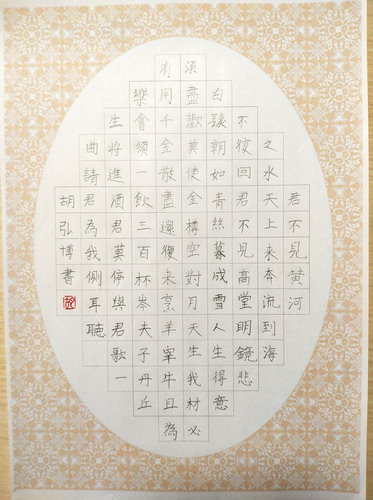 君不見黃河
之水天上来奔流到海
不復回君不見高堂明鏡悲
白髮朝如青絲暮成雪人生得意
須盡歡莫使金樽空對月天生我材必
有用千金散盡還復来烹羊宰牛且為
樂會須一飲三百杯岑夫子丹丘
生將進酒君莫停與君歌一
曲請君為我側耳聽
胡弘博書